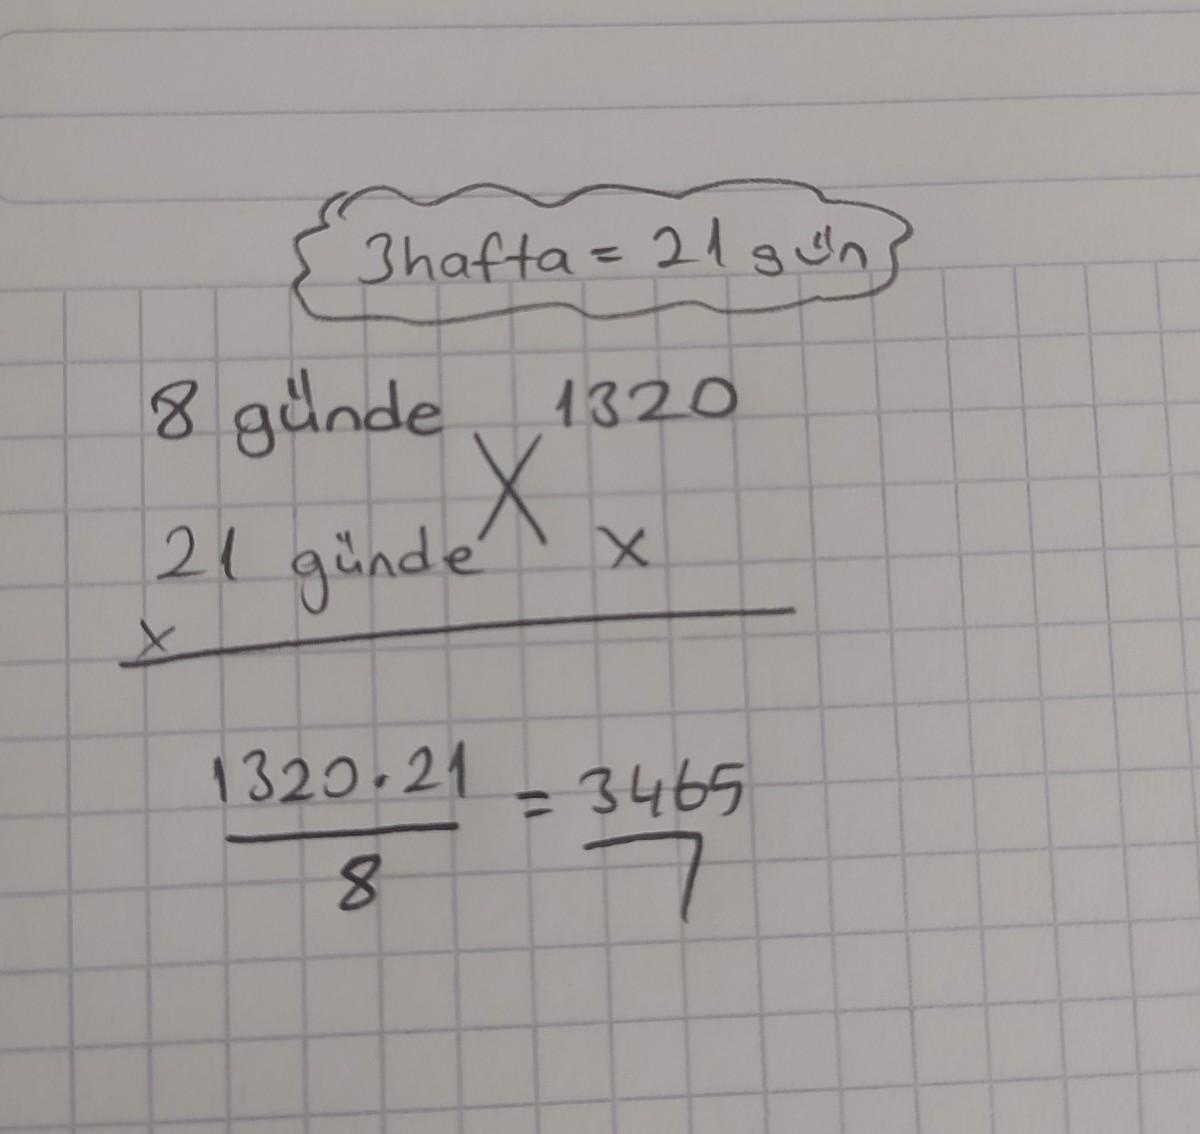 3hafta = 21 gün
8 günde 1320
21 günde x
x
1320.21
8
= 3465